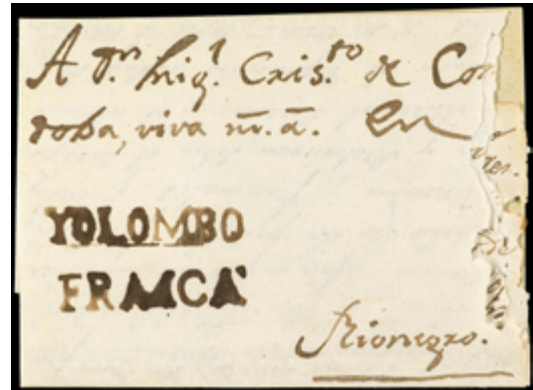 A Dn. Migl. Cris.to de Cor
doba, viva m.a. en
YOLOMBO
FRANCA
Rionegro.